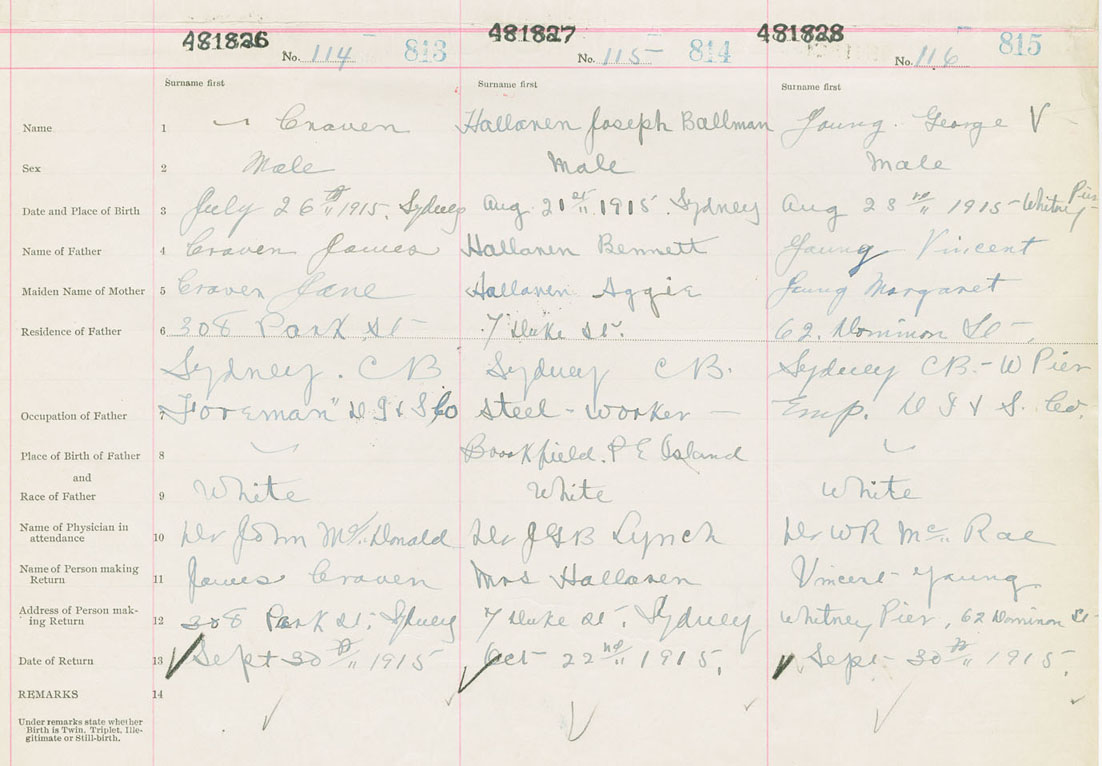 481826 481827 481828
No. 114 – 813 No. 115 – 814 No. 116 – 815
Surname first Surname first Surname first
Name 1 Craven Hallaren Joseph Ballman Young. George V
Sex 2 Male Male Male
Date and Place of Birth 3 July 26th 1915. Sydney Aug 21st 1915. Sydney Aug 23rd 1915 – Whitney Pier
Name of Father 4 Craven James Hallaren Bennett Young Vincent
Maiden Name of Mother 5 Craven Jane Hallaren Aggie Young Margaret
Residence of Father 6 308 Park St – 7 Duke St. 62. Dominon St –
Sydney. CB Sydney CB. Sydney CB. – W Pier
Occupation of Father 7 "Foreman" D I & S Co Steel – worker – Emp. D I & S. Co.
Place of Birth of Father 8 Brookfield. P E Island
and
Race of Father 9 White White White
Name of Physician in
attendance 10 Dr John McDonald Dr JGB Lynch Dr WR Mc Rae
Name of Person making
Return 11 James Craven Mrs Hallaren Vincent Young
Address of Person mak-
ing Return 12 308 Park St, Sydney 7 Duke St, Sydney Whitney Pier, 62 Dominon St –
Date of Return 13 Sept 30th 1915 Oct – 22nd 1915. Sept – 30th 1915.
REMARKS 14
Under remarks state whether
Birth is Twin, Triplet, Ille-
gitimate or Still-birth.